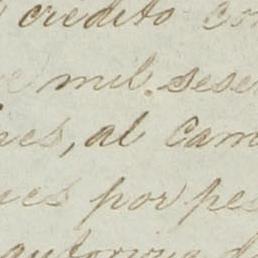 credito co
mil sese
nes, al cam
ues por pes